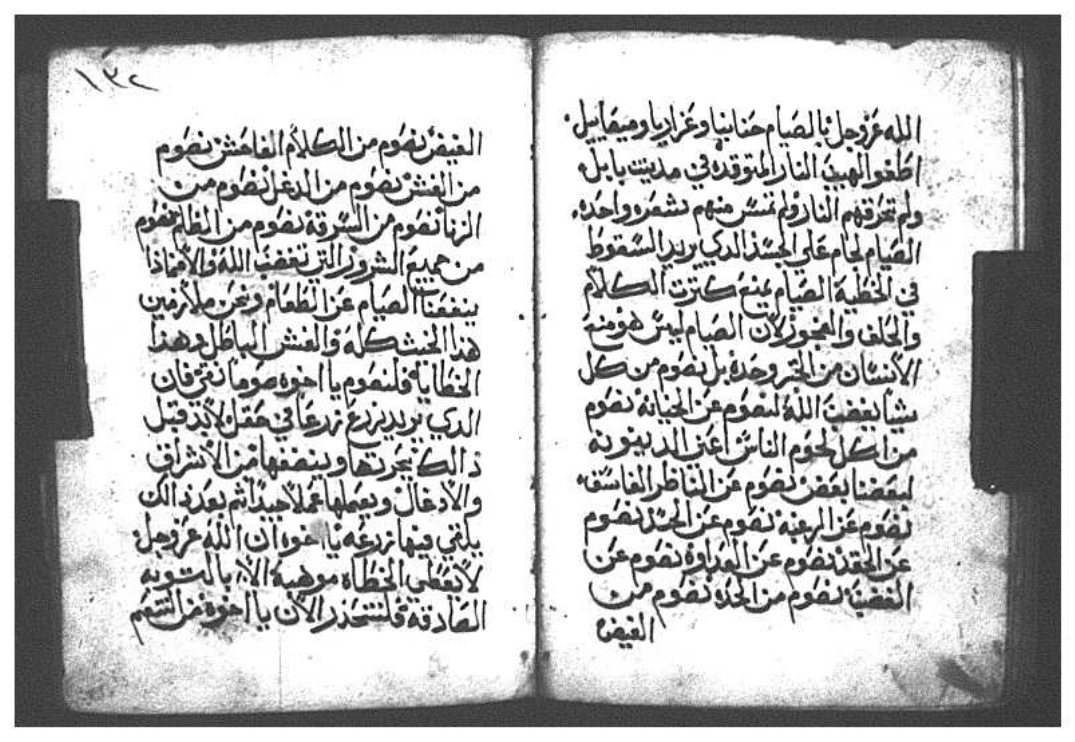 الله عز وجل بالصيام حنانيا وعزاريا وميصاييل.
اطفوا لهيب النار المتوقده في مدينت بابل.
ولم تحرقهم النار ولم تمس منهم شعره واحده.
الصيام لجام على الجسد الذي يريد السقوط
في الخطية الصيام يمنع كترت الكلام
والحلف والعجوز لان الصيام ليس هو منع
الانسان من الخبز وحده بل نصوم من كل
شيا يغضب الله لنصوم عن الخيانه نصوم
من اكل لحوم الناس اعني الدينونه
لبعضنا بعض نصوم عن المناظر الفاسقه
نصوم عن الرغبه نصوم عن الحسد نصوم
عن الحقد نصوم عن العداوة نصوم عن
الغضب نصوم من الحده نصوم من
الغيض
١٣٢
الغيض نصوم من الكلام الفاحش نصوم
من الغش نصوم من الدغل نصوم من
الزنا نصوم من السرقة نصوم من الظلم نصوم
من جميع الشرور التي تغضب الله والا فماذا
ينفعنا الصيام عن الطعام ونحن ملازمين
هذا الخبث كله والغش الباطل وهذا
الخطايا فلنصوم يا اخوه صوما نقي فان
الذي يريد يزرع زرعا في حقل لابد قبل
ذالك يحرتها وينضفها من الاشراق
والادغال ويعملها عملا جيدا تم بعد ذالك
يلقي فيها زرعه يا اخوه ان الله عز وجل
لا يعطي الخطاه موهبة الا بالتوبه
الصادقة فلنتحذر الان يا اخوة من التنعم